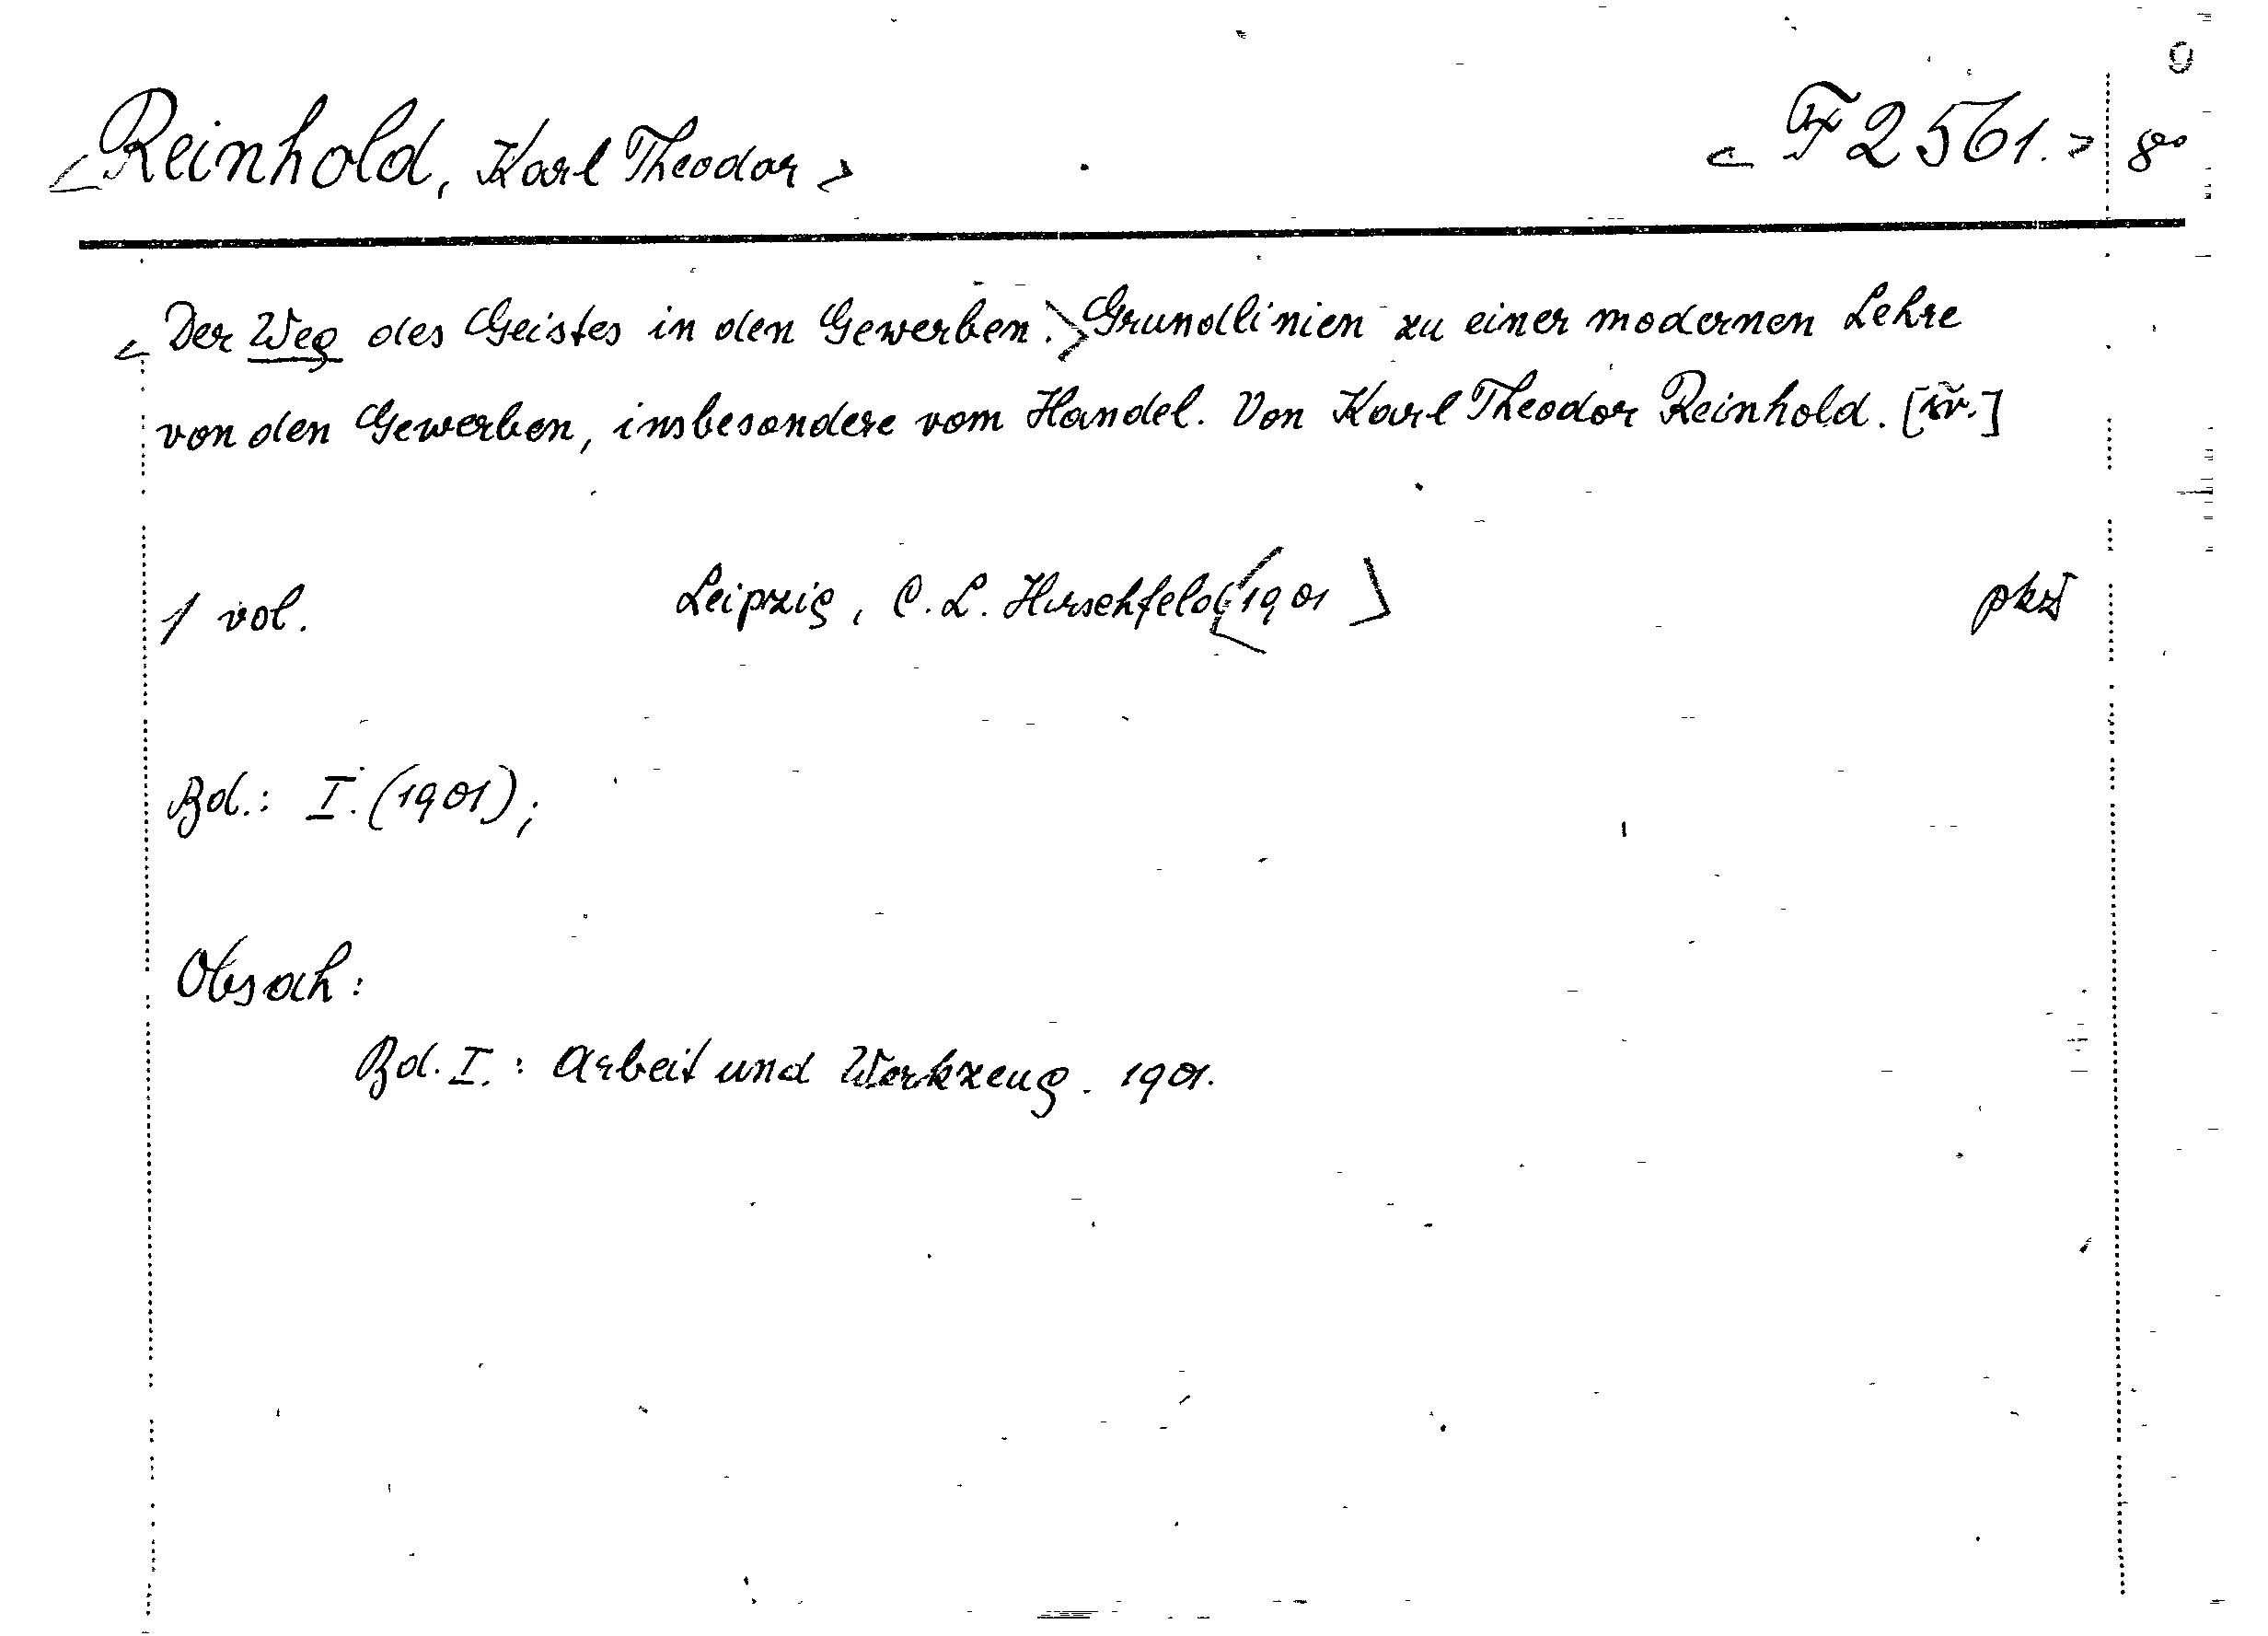 <Reinhold, Karl Theodor> <F 2561.> 8°
<Der Weg des Geistes in den Gewerben.> Grundlinien zu einer modernen Lehre
von den Gewerben, insbesondere vom Handel. Von Karl Theodor Reinhold. [iv.]
1 vol. Leipzig, C. L. Hirschfeld <1901>
Bd.: I. (1901);
Obsah:
Bd. I.: Arbeit und Werkzeug. 1901.